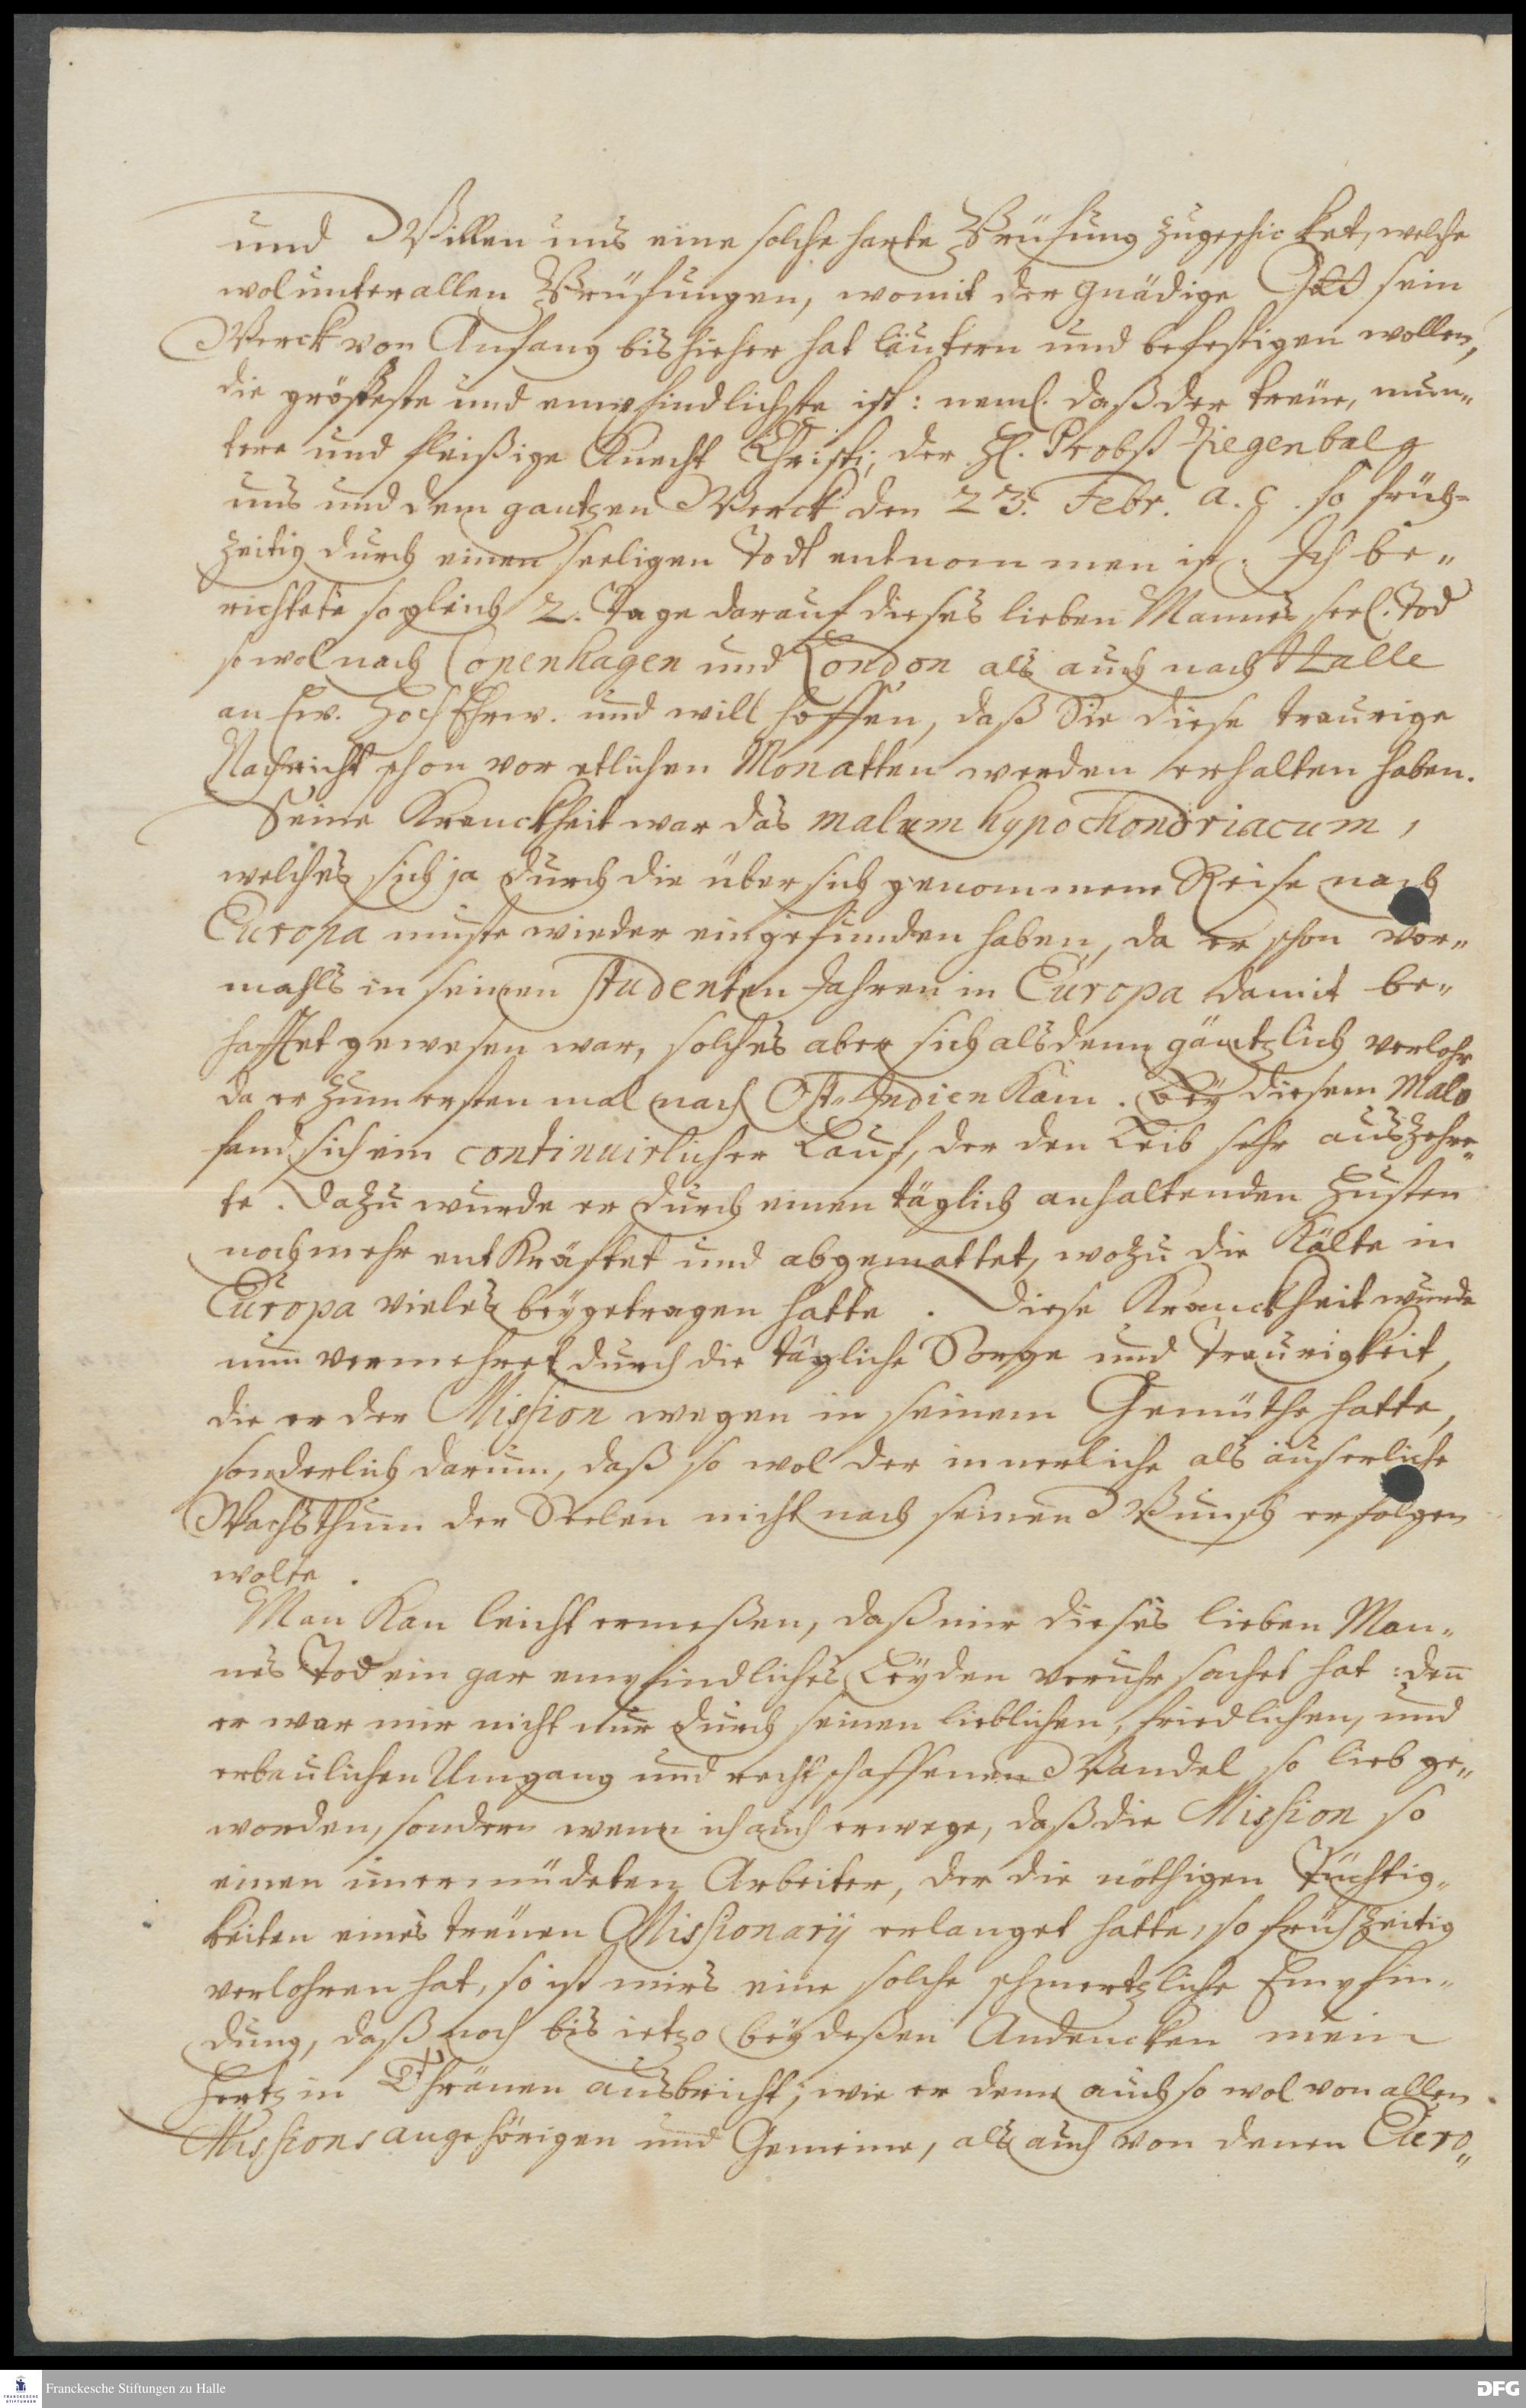 und Willen uns eine solche harte Prüfung zugeschicket, welche
wol unter allen Prüfungen, womit der gnädige Gott sein
Werck von Anfang bis hieher hat läutern und befestigen wollen,
die grösseste und empfindlichste ist: neml. daß der treue, mun„
tere und fleißige Knecht Christi, der H. Probst Ziegenbalg
uns und dem gantzen Werck den 23. Febr. a. c. so früh=
zeitig durch einen seeligen Todt entnommen ist. Ich be„
richtete sogleich 2. Tage darauf dieses lieben Mannes seel. Tod
so wol nach Copenhagen und London als auch nach Halle
an Ew. HochEhrw. und will hoffen, daß Sie diese traurige
Nachricht schon vor etlichen Monatten werden erhalten haben.
Seine Kranckheit war das malum hypochondriacum,
welches sich ja durch die über sich genommene Reise nach
Europa muste wieder eingefunden haben, da er schon vor„
mahls in seinen studenten Jahren in Europa damit be„
hafftet gewesen war, solches aber sich alsdenn gäntzlich verlohr
da er zum ersten mal nach Ost-Indien kam. Bey diesem Malo
fand sich ein continuirlicher Lauf, der den Leib sehr auszehre„
te. Dazu wurde er durch einen täglich anhaltenden Husten
noch mehr entkräftet und abgemattet, wozu die Kälte in
Europa vieles beygetragen hatte. Diese Kranckheit wurde
nun vermehret durch die tägliche Sorge und Traurigkeit,
die er der Mission wegen in seinem Gemüthe hatte,
sonderlich darum, daß so wol der innerliche als äuserliche
Wachsthum der Seelen nicht nach seinen Wunsch erfolgen
wolte.
Man kan leicht ermeßen, daß mir dieses lieben Man„
nes Tod ein gar empfindliches Leyden veruhrsachet hat: deñ
er war mir nicht nur durch seinen lieblichen, friedlichen, und
erbaulichen Umgang und rechtschaffenen Wandel so lieb ge„
worden, sondern wenn ich auch erwege, daß die Mission so
einen unermüdeten Arbeiter, der die nöthigen Tüchtig„
keiten eines treuen Missionarij erlanget hatte, so frühzeitig
verlohren hat, so ist mirs eine solche schmertzliche Empfin„
dung, daß noch bis ietzo bey deßen Andencken mein
Hertz in Thränen ausbricht; wie er denn auch so wol von allen
Missions angehörigen und Gemeine, als auch von denen Euro„
Franckesche Stiftungen zu Halle
FRANCKESCHE STIFTUNGEN
DFG